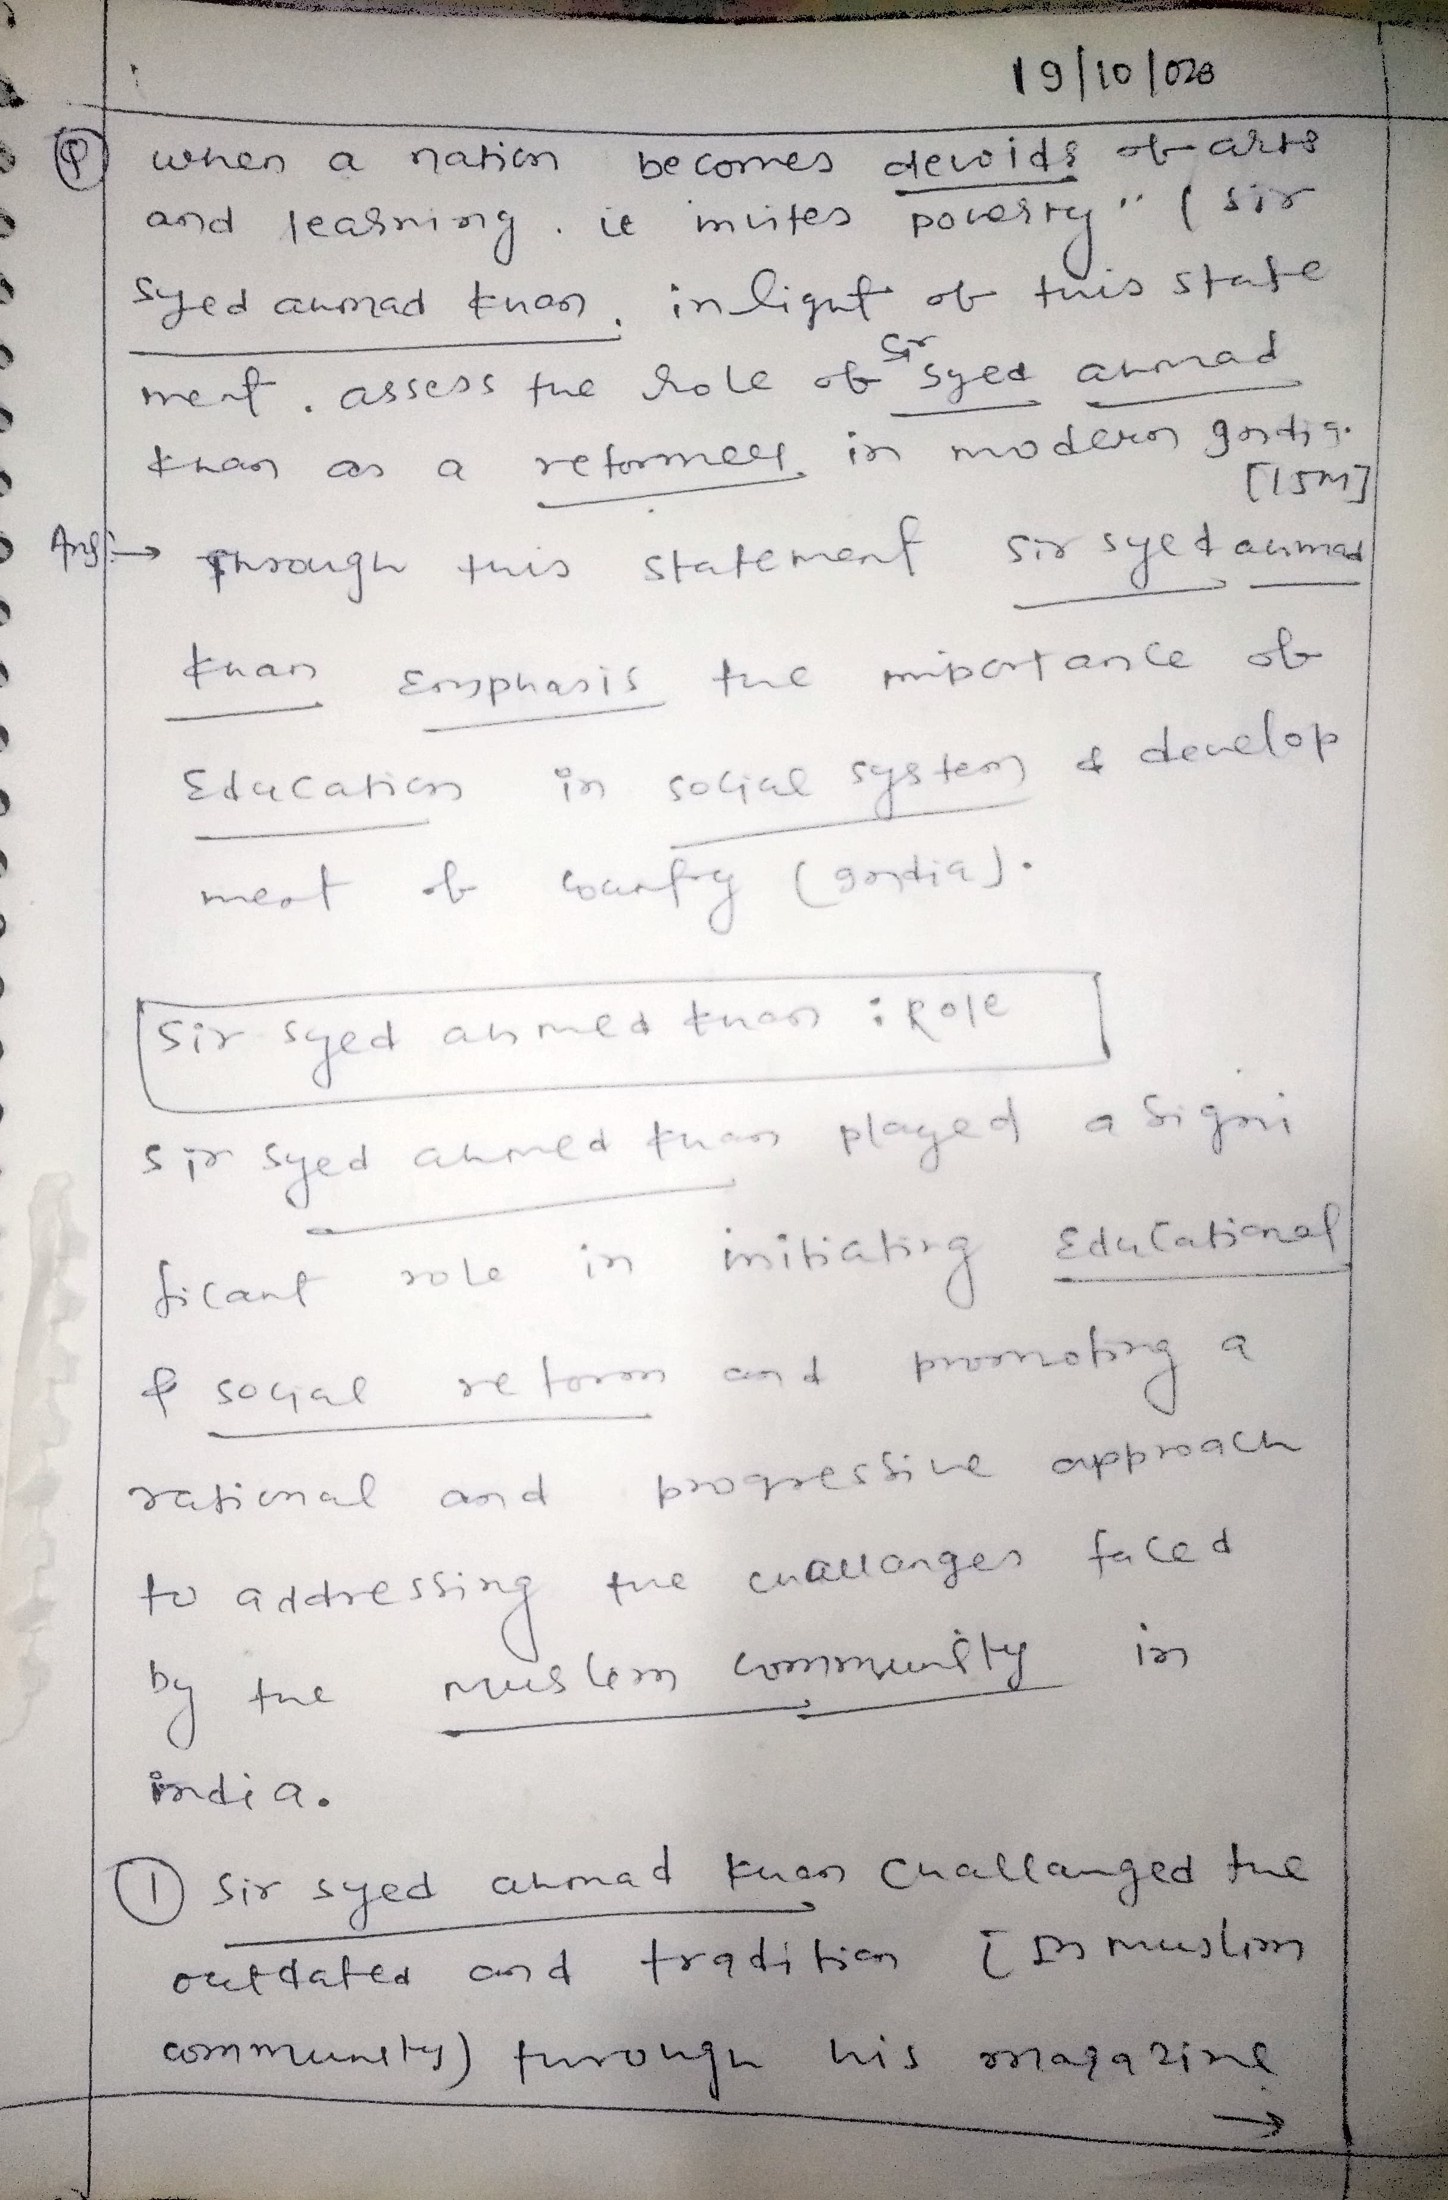 19/10/020
Q when a nation becomes devoids of arts
and learning. it invites poverty" ( Sir
Syed ahmad khan. in light of this state
ment. assess the role of Sir Syed ahmad
khan as a reformer in modern India.
[15M]
Ans:→ Through this statement Sir Syed ahmad
khan Emphasis the importance of
Education in social system & develop
ment of country (India).
Sir Syed ahmed khan : Role
Sir Syed ahmed khan played a Signi
ficant role in initiating Educational
& social reform and promoting a
rational and progressive approach
to addressing the challanges faced
by the muslem community in
india.
① Sir syed ahmad khan challanged the
outdated and tradition [In muslim
community) through his magazine
→